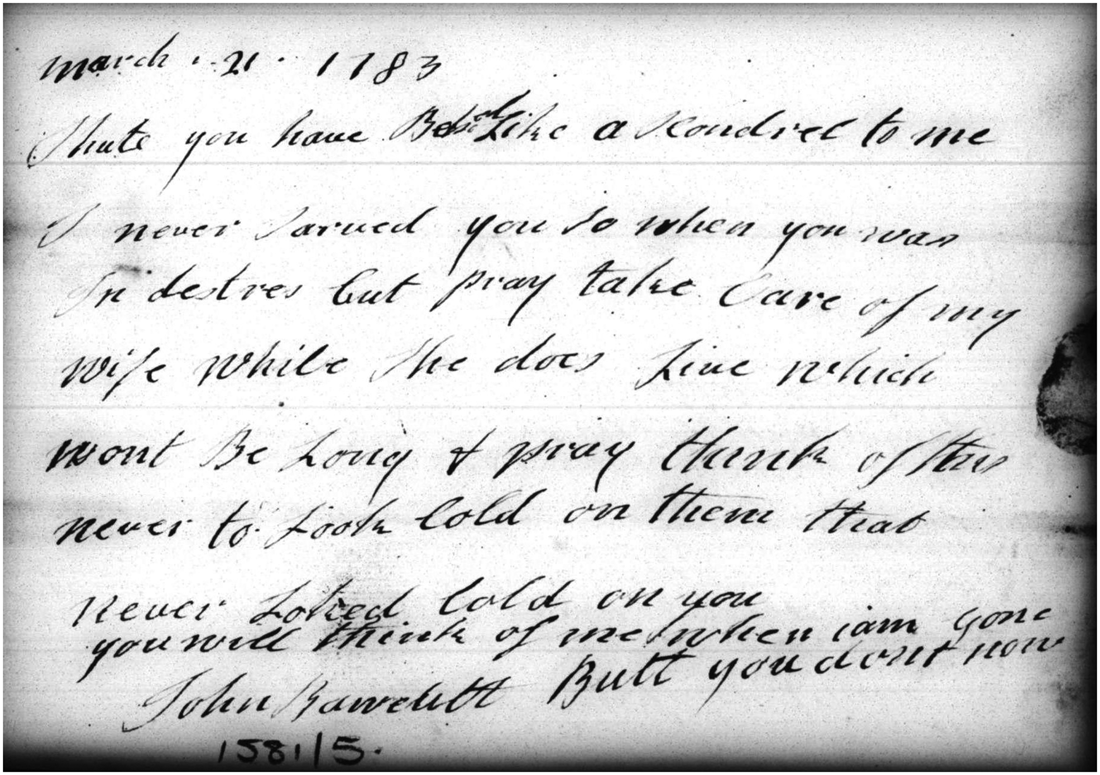 march . 21 . 1783
Shute you have Behaed Like a Scoundrel to me
I never Sarved you So when you was
In destres but pray take Care of my
wife while She does Live which
wont Be Long & pray think of this
never to Look Cold on them that
never Loked Cold on you
you will think of me when iam gone
John Bawdett Butt you dont now
1581/5.